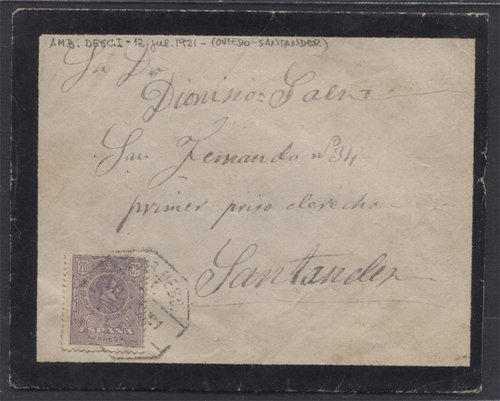 AMB. DESC.I - 12, jul. 1921 - (OVIEDO-SANTANDER)
Sr Dn
Dionisio Saenz
San Fernando nº 34
primer piso derecha
Santander
20 cs
ESPAÑA
CORREOS
DESC
21